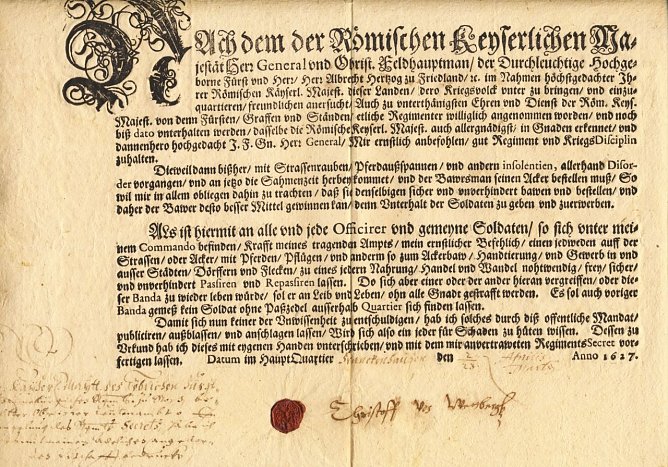 NAch dem der Römischen Keyserlichen Ma-
jestät Herr General vnd Obrist. Feldhauptman/ der Durchleuchtige Hochge-
borne Fürst vnd Herr/ Herr Albrecht Hertzog zu Friedland/ ꝛc. im Nahmen höchstgedachter Ih-
rer Römischen Käyserl. Majest. dieser Landen/ dero Kriegsvolck vnter zu bringen/ und einzu-
quartieren/ freundlichen anersucht/ Auch zu vnterthänigsten Ehren vnd Dienst der Röm. Keys.
Majest. von denn Fürsten/ Graffen vnd Ständen/ etliche Regimenter williglich angenommen worden/ vnd noch
biß dato vnterhalten werden/ dasselbe die Römische Keyserl. Majest. auch allergnädigst/ in Gnaden erkennet/ vnd
dannenhero hochgedacht J. F. Gn. Herr General/ Mir ernstlich anbefohlen/ gut Regiment vnd KriegsDisciplin
zuhalten.
Dieweil dann bißher/ mit Strassenrauben/ Pferdaußspannen/ vnd andern insolentien, allerhand Disor-
der vorgangen/ vnd an jetzo die Sahmenzeit herbey kommet/ vnd der Bawersman seinen Acker bestellen muß/ So
wil mir in allem obligen dahin zu trachten/ daß sie denselbigen sicher vnd vnverhindert bawen vnd bestellen/ vnd
daher der Bawer desto besser Mittel gewinnen kan/ denn Vnterhalt der Soldaten zu geben vnd zuerwerben.
Als ist hiermit an alle vnd jede Officirer vnd gemeyne Soldaten/ so sich vnter mei-
nem Commando befinden/ Krafft meines tragenden Ampts/ mein ernstlicher Befehlich/ einen jedweden auff der
Strassen/ oder Acker/ mit Pferden/ Pflügen/ vnd andern so zum Ackerbaw/ Handtierung/ vnd Gewerb in vnd
ausser Städten/ Dörffern vnd Flecken/ zu eines jedern Nahrung/ Handel vnd Wandel nohtwendig/ frey/ sicher/
vnd vnverhindert Pasiren vnd Repasiren lassen. Do sich aber einer oder der ander hieran vergreiffen/ oder die-
ser Banda zu wieder leben würde/ sol er an Leib vnd Leben/ ohn alle Gnadt gestrafft werden. Es sol auch voriger
Banda gemeß kein Soldat ohne Paßzedel ausserhalb Quartier sich finden lassen.
Damit sich nun keiner der Vnwissenheit zu entschuldigen/ hab ich solches durch diß offentliche Mandat/
publiciren/ außblassen/ vnd anschlagen lassen/ Wird sich also ein jeder für Schaden zu hüten wissen. Dessen zu
Vrkund hab ich dieses mit eygenen Handen vnterschrieben/ vnd mit dem mir anvertraweten Regiments Secret vor-
fertigen lassen. Datum im HauptQuartier den Anno 1627.
Christoff von